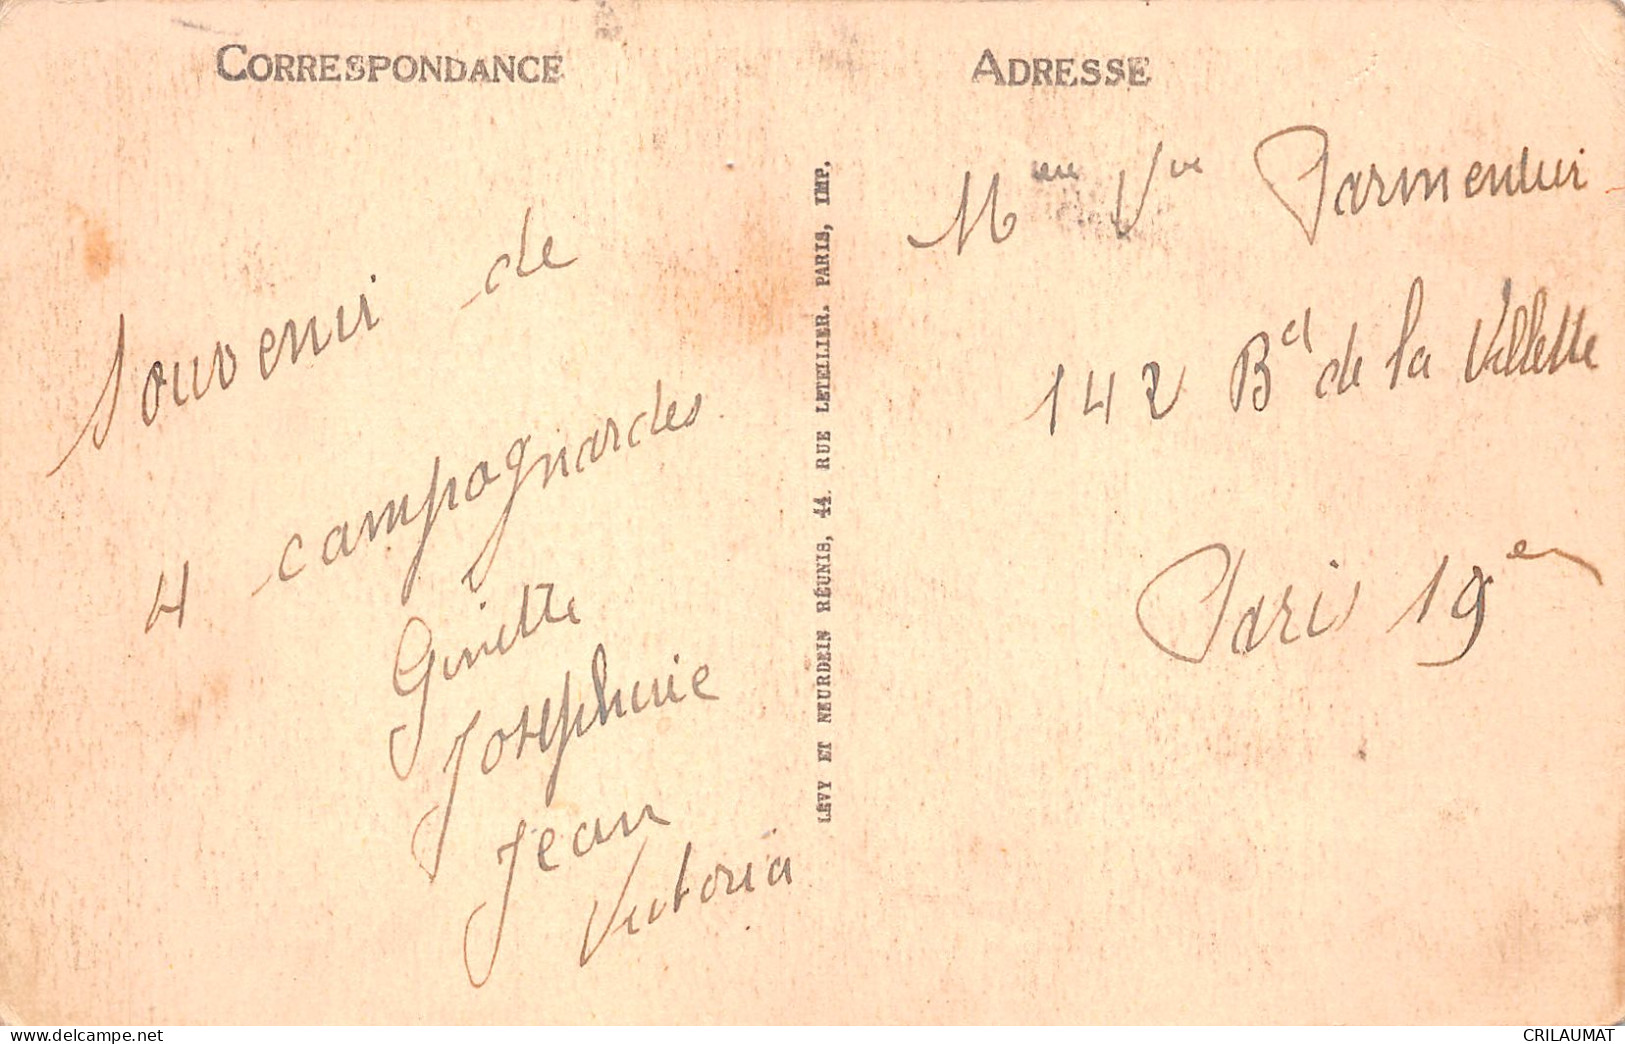 CORRESPONDANCE
Souvenir de
4 campagnardes
Ginette
Josephine
Jean
Victoria
LÉVY ET NEURDEIN RÉUNIS, 44. RUE LETELLIER. PARIS, IMP.
ADRESSE
Mme Vve Parmentier
142 Bd de la Villette
Paris 19e
www.delcampe.net
CRILAUMAT